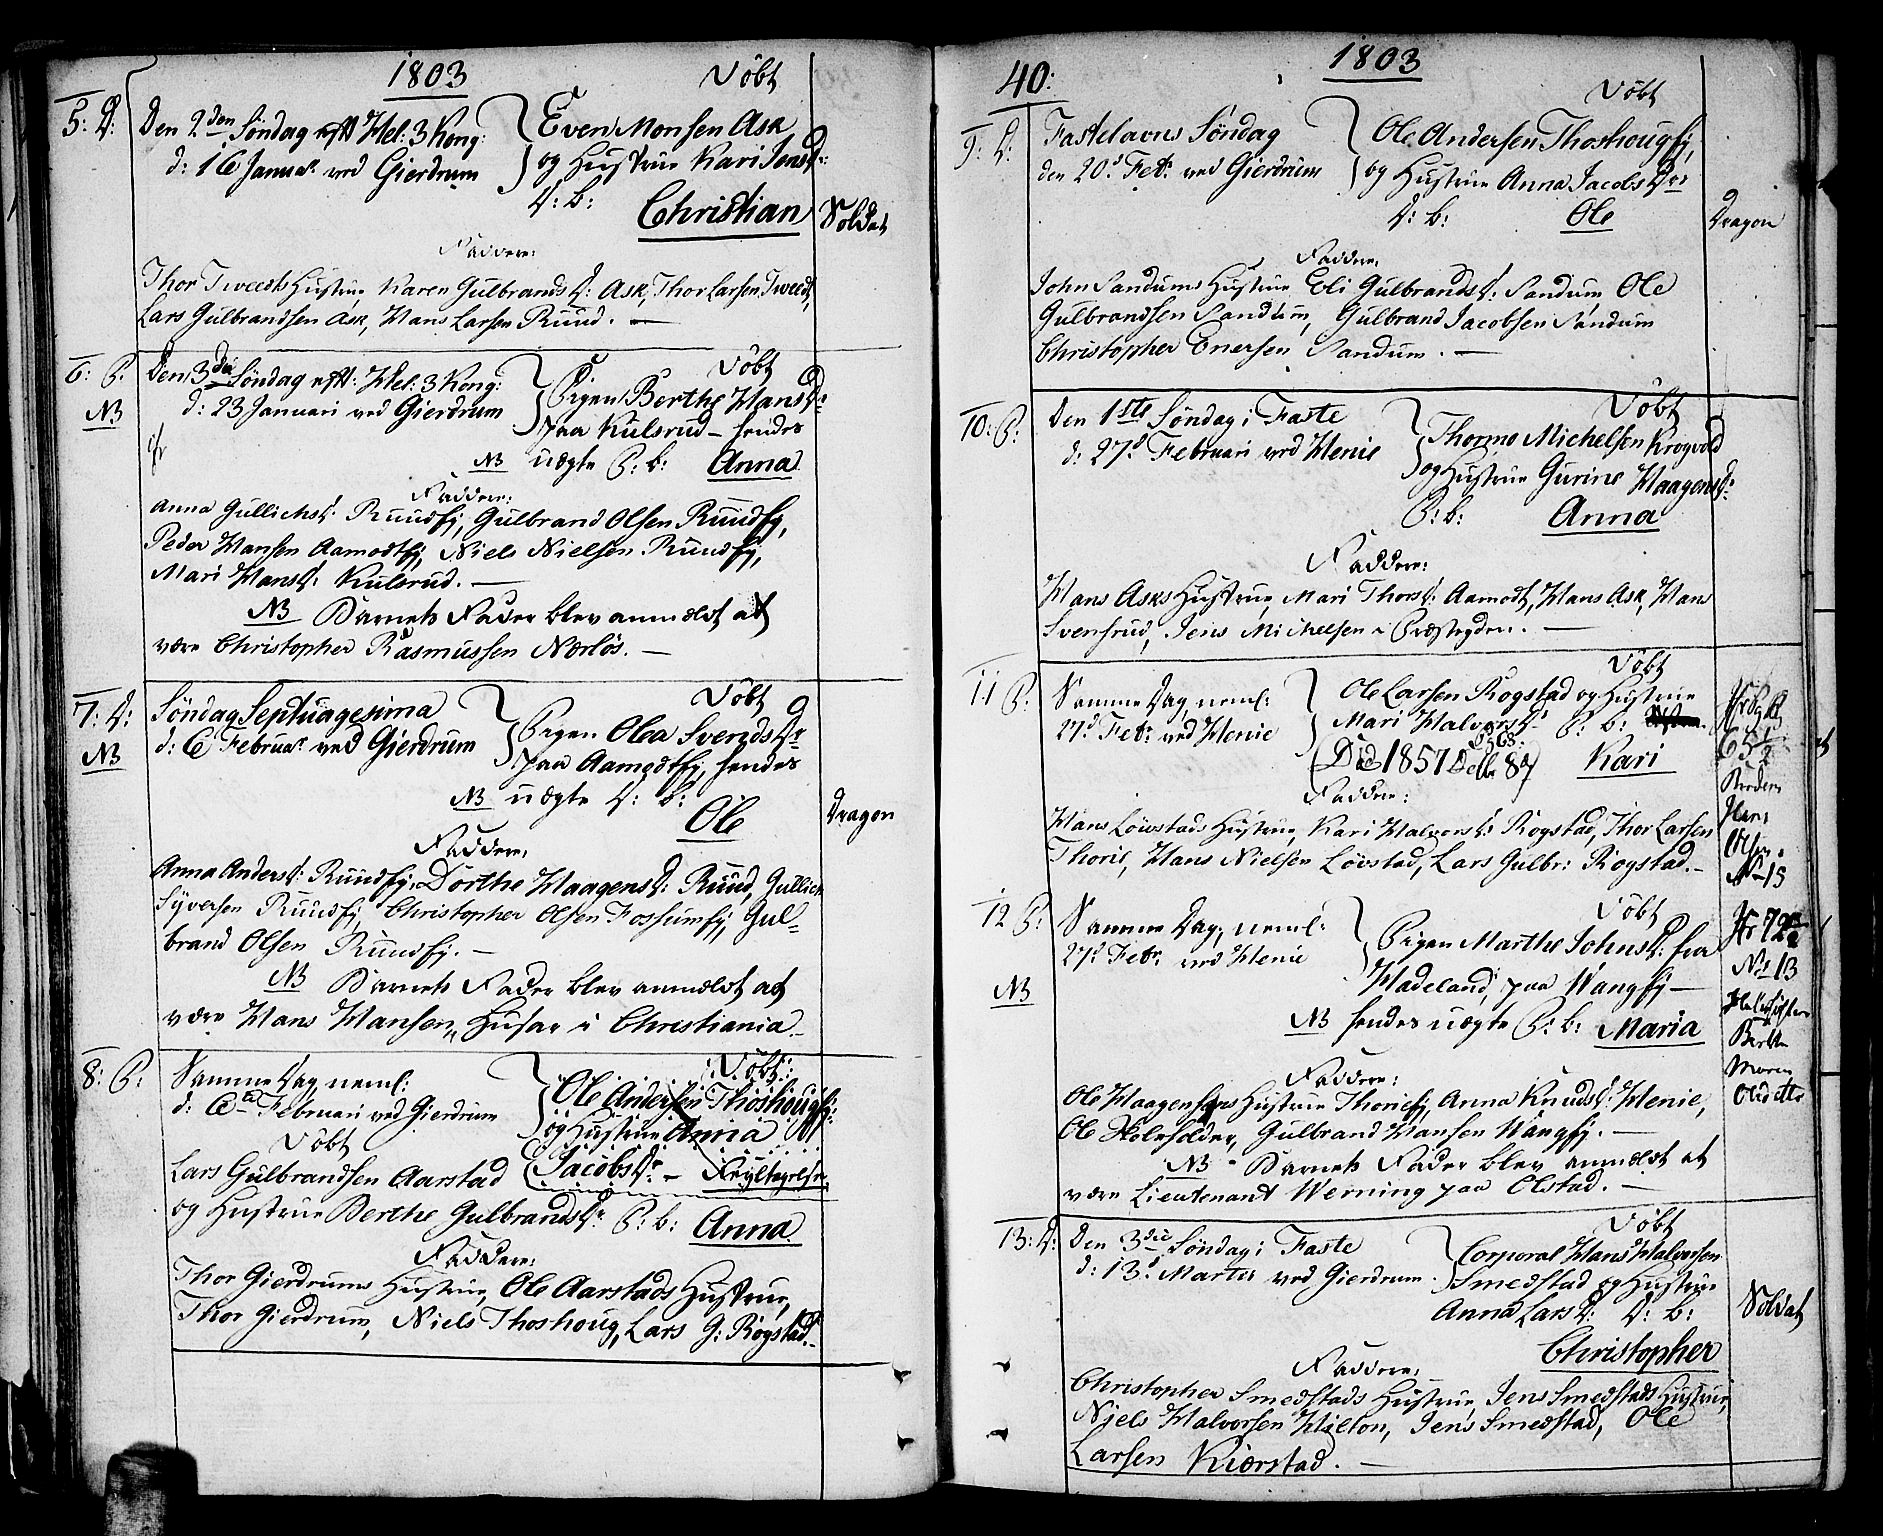 1803
Döbt
5: D: Den 2den Søndag eftr Hel: 3 Kong:
d: 16 Januar. ved Gierdrum
Even Monsen Ask
og Hustrue Kari Jens D:
D: b:
Christian
Soldat
Faddere:
Thor Tweets Hustrue, Karen Gulbrands D: Ask, Thor Larsen Tweedt,
Lars Gulbrandsen Ask, Hans Larsen Ruud. —
6: P. Den 3die Søndag eftr: Hel: 3 Kong:
NB
d: 23 Januari ved Gierdrum
Döbt
Pigen Berthe Hans Dr
paa Kulsrud – hendes
NB uægte P: b: Anna
Faddere:
Anna Gullichs D: Ruudsej, Gulbrand Olsen Ruudsej,
Peder Hansen Aamodtej, Niels Nielsen Ruudsej,
Mari Hans D: Kulsrud. —
NB Barnets Fader blev anmældt at
være Christopher Rasmussen Nærløs. —
7: D: Søndag Septuagesima
NB
d: 6 Februar. ved Gierdrum
Döbt
Pigen Olea Svends Dr
paa Aamodtej, hendes
NB uægte D: b:
Ole
Dragon
Faddere:
Anna Anders D: Ruudsej, Dorthe Haagens D: Ruud, Gullich
Syversen Ruudsej, Christopher Olsen Fossumej, Gul-
brand Olsen Ruudsej. —
NB Barnets Fader blev anmældt at
være Hans Hansen, Husar i Christiania. —
8: P: Samme Dag, neml:
d: 6te Februari ved Gierdrum
Döbt:
Ole Andersen Thoshougej:
og Hustrue Anna
Jacobs Dr –
Döbt
Lars Gulbrandsen Aarstad
og Hustrue Berthe Gulbrands Dr P: b: Anna
Faddere:
Thor Gierdrums Hustrue, Ole Aarstads Hustrue,
Thor Gierdrum, Niels Thoshoug, Lars G: Rogstad. —
40:
1803
Döbt
9: D: Fastelavns Søndag
den 20d Febr. ved Gierdrum
Ole Andersen Thoshougej,
og Hustrue Anna Jacobs Dr
D: b: Ole
Dragon
Faddere:
John Sandums Hustrue Eli Gulbrands D: Sandum, Ole
Gulbrandsen Sandum, Gulbrand Jacobsen Sandum
Christopher Enersen Sandum. —
10: P: Den 1ste Søndag i Faste
d: 27d Februari ved Henie
Döbt
Thormo Michelsen Krogvold
og Hustrue Gurine Haagens Dr
P: b: Anna
Faddere:
Hans Asks Hustrue, Mari Thors D: Aamodt, Hans Ask, Hans
Svensrud, Jens Michelsen i Præstegden. —
11 P: Samme Dag, neml:
27d Febr. ved Henie
Döbt
Ole Larsen Rogstad og Hustrue
Mari Halvors Dr P: b:
Kari
(Död 1857 Decbr 8d)
Faddere:
65 1/2
No 15
Hans Löwstads Hustrue, Kari Halvors D: Rogstad, Thor Larsen
Thorie, Hans Nielsen Lövstad, Lars Gulbr: Rogstad. —
12 P: Samme Dag, neml:
27d Febr. ved Henie
NB
Döbt
Pigen Marthe Johns D: fra
Hadeland, paa Wangej —
NB hendes uægte P: b: Maria
No 13
Halvsøster
Berthe
Maren
Olidette
Faddere:
Ole Haagensens Hustrue Thorieej, Anna Knuds D: Henie,
Ole Holeholder, Gulbrand Hansen Wangej. —
NB Barnets Fader blev anmældt at
være Lieutenant Werning paa Olstad. —
13: D: Den 3die Søndag i Faste
d: 13d Martii ved Gierdrum.
Döbt
Corporal Hans Halvorsen
Smedstad og Hustrue
Anna Lars D: D: b:
Christopher
Soldat
Faddere:
Christopher Smedstads Hustrue, Jens Smedstads Hustrue,
Niels Halvorsen Hielon, Jens Smedstad, Ole
Larsen Kiærstad. —